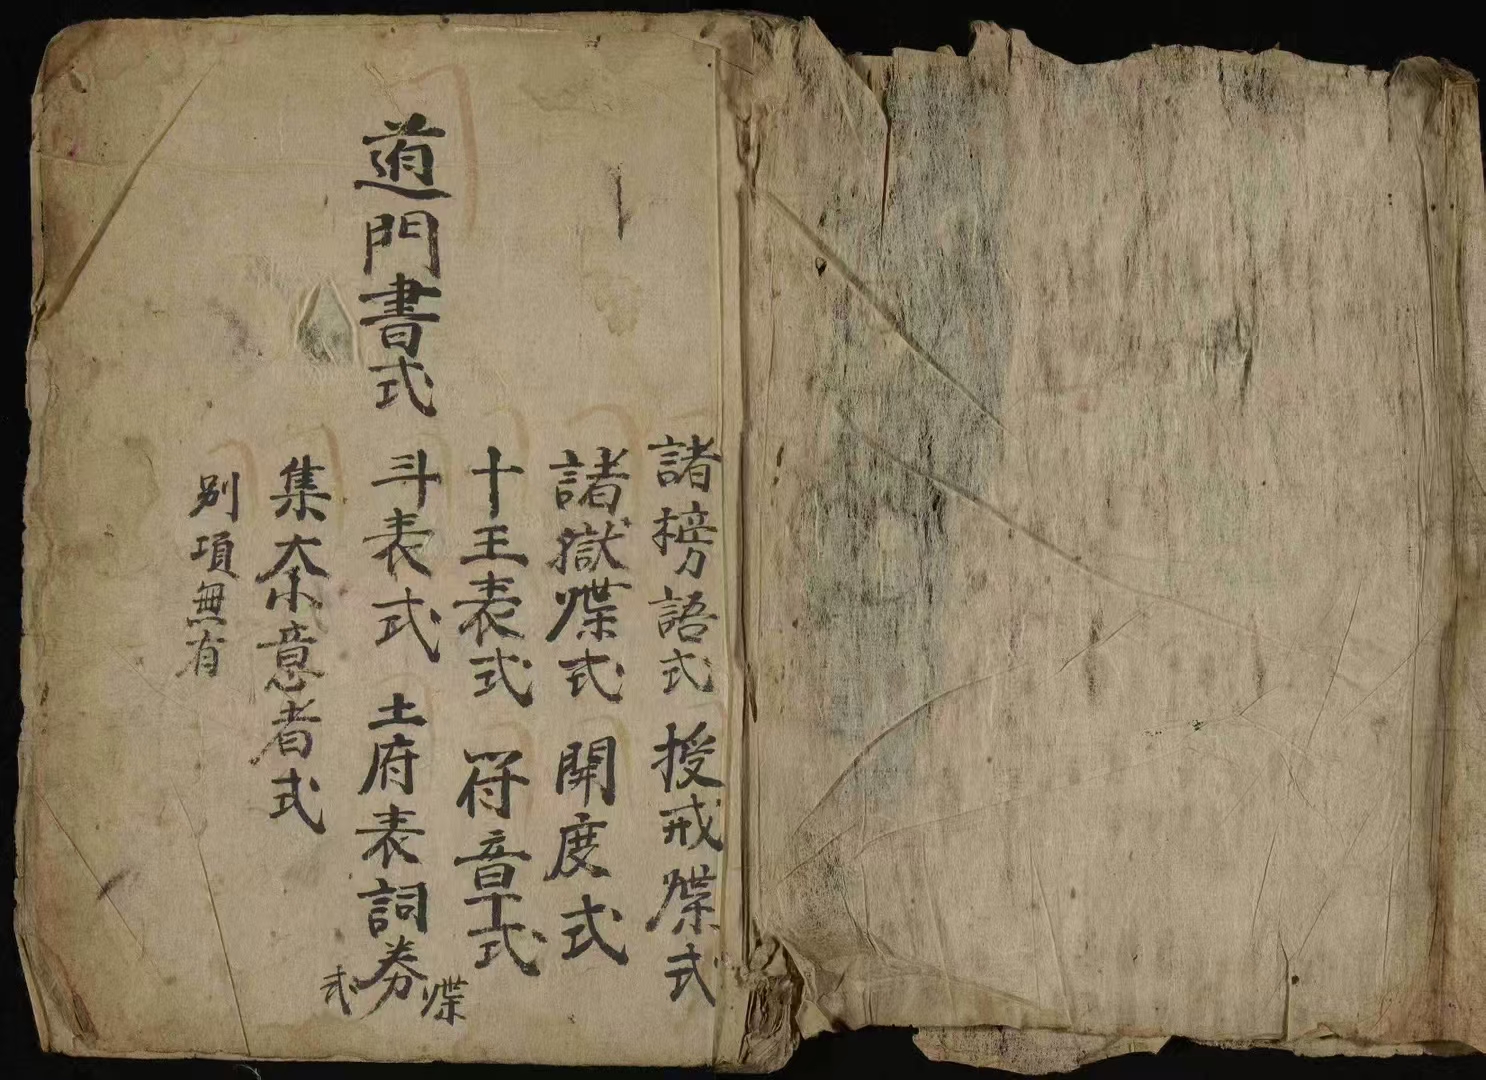 道門書式
諸榜語式 授戒牒式
諸獄牒式 開度式
十王表式 符章式
斗表式 土府表詞券牒式
集奈意者式
别項無有